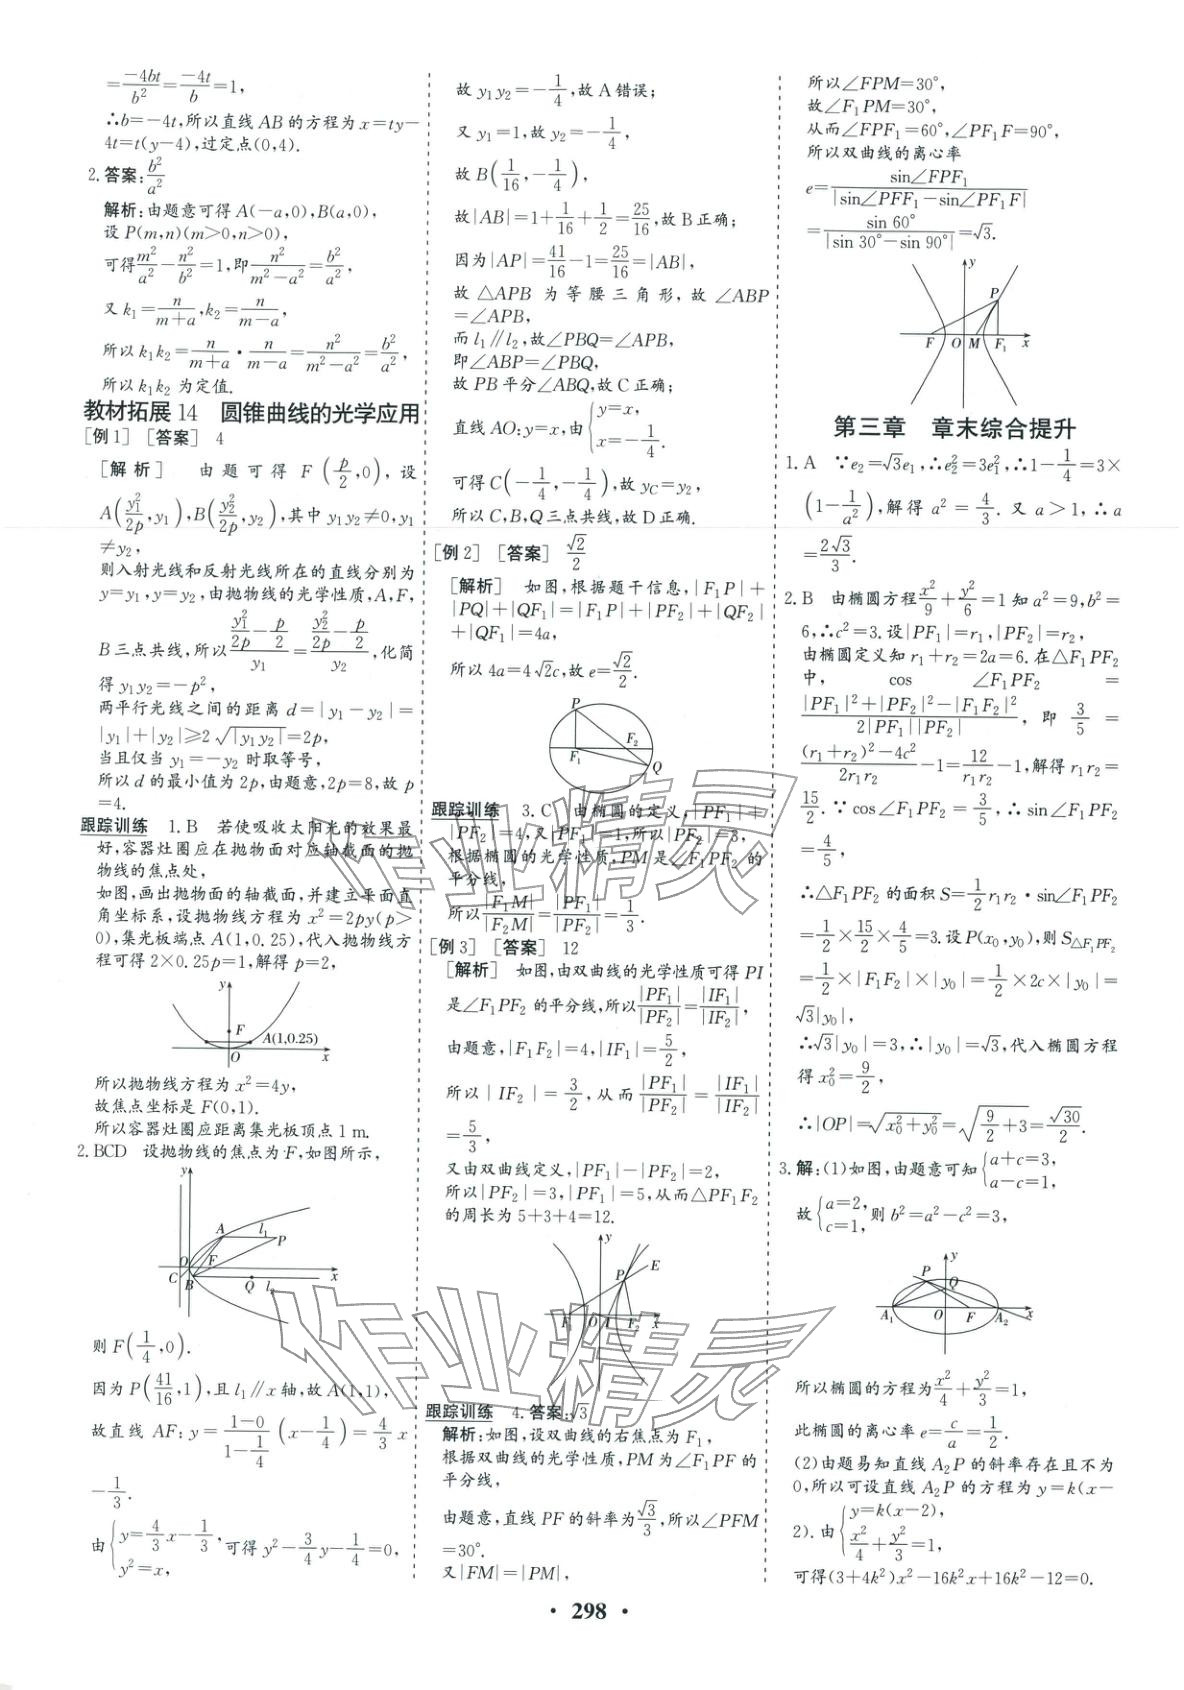 =\frac{-4bt}{b^2}=\frac{-4t}{b}=1,
∴b=-4t,所以直线 AB 的方程为 x=ty-
4t=t(y-4),过定点(0,4).
2. 答案:\frac{b^2}{a^2}
解析:由题意可得 A(-a,0),B(a,0),
设 P(m,n)(m>0,n>0),
可得\frac{m^2}{a^2}-\frac{n^2}{b^2}=1,即\frac{n^2}{m^2-a^2}=\frac{b^2}{a^2},
又 k₁=\frac{n}{m+a},k₂=\frac{n}{m-a},
所以 k₁k₂=\frac{n}{m+a}·\frac{n}{m-a}=\frac{n^2}{m^2-a^2}=\frac{b^2}{a^2},
所以 k₁k₂ 为定值.
教材拓展 14 圆锥曲线的光学应用
[例 1] [答案] 4
[解析] 由题可得 F(\frac{p}{2},0),设
A(\frac{y_1^2}{2p},y₁),B(\frac{y_2^2}{2p},y₂),其中 y₁y₂≠0,y₁
≠y₂,
则入射光线和反射光线所在的直线分别为
y=y₁,y=y₂,由抛物线的光学性质,A,F,
B 三点共线,所以\frac{\frac{y_1^2}{2p}-\frac{p}{2}}{y_1}=\frac{\frac{y_2^2}{2p}-\frac{p}{2}}{y_2},化简
得 y₁y₂=-p²,
两平行光线之间的距离 d=|y₁-y₂|=
|y₁|+|y₂|≥2\sqrt{|y_1y_2|}=2p,
当且仅当 y₁=-y₂ 时取等号,
所以 d 的最小值为 2p,由题意,2p=8,故 p
=4.
跟踪训练 1. B 若使吸收太阳光的效果最
好,容器灶圈应在抛物面对应轴截面的抛
物线的焦点处,
如图,画出抛物面的轴截面,并建立平面直
角坐标系,设抛物线方程为 x²=2py(p>
0),集光板端点 A(1,0.25),代入抛物线方
程可得 2×0.25p=1,解得 p=2,
y
F
A(1,0.25)
O
x
所以抛物线方程为 x²=4y,
故焦点坐标是 F(0,1).
所以容器灶圈应距离集光板顶点 1 m.
2. BCD 设抛物线的焦点为 F,如图所示,
y
A
l₁
P
O
F
C
B
Q
l₂
x
则 F(\frac{1}{4},0).
因为 P(\frac{41}{16},1),且 l₁∥x 轴,故 A(1,1),
故直线 AF:y=\frac{1-0}{1-\frac{1}{4}}(x-\frac{1}{4})=\frac{4}{3}x
-\frac{1}{3}.
由{y=\frac{4}{3}x-\frac{1}{3},
y²=x,
可得 y²-\frac{3}{4}y-\frac{1}{4}=0,
故 y₁y₂=-\frac{1}{4},故 A 错误;
又 y₁=1,故 y₂=-\frac{1}{4},
故 B(\frac{1}{16},-\frac{1}{4}),
故|AB|=1+\frac{1}{16}+\frac{1}{2}=\frac{25}{16},故 B 正确;
因为|AP|=\frac{41}{16}-1=\frac{25}{16}=|AB|,
故 △APB 为等腰三角形,故 ∠ABP
=∠APB,
而 l₁∥l₂,故∠PBQ=∠APB,
即∠ABP=∠PBQ,
故 PB 平分∠ABQ,故 C 正确;
直线 AO:y=x,由{y=x,
x=-\frac{1}{4}.
可得 C(-\frac{1}{4},-\frac{1}{4}),故 y_C=y₂,
所以 C,B,Q 三点共线,故 D 正确.
[例 2] [答案] \frac{\sqrt{2}}{2}
[解析] 如图,根据题干信息,|F₁P|+
|PQ|+|QF₁|=|F₁P|+|PF₂|+|QF₂|
+|QF₁|=4a,
所以 4a=4\sqrt{2}c,故 e=\frac{\sqrt{2}}{2}.
P
F₂
F₁
Q
跟踪训练 3. C 由椭圆的定义,|PF₁|+
|PF₂|=4,又|PF₁|=1,所以|PF₂|=3,
根据椭圆的光学性质,PM 是∠F₁PF₂ 的
平分线,
所以\frac{|F_1M|}{|F_2M|}=\frac{|PF_1|}{|PF_2|}=\frac{1}{3}.
[例 3] [答案] 12
[解析] 如图,由双曲线的光学性质可得 PI
是∠F₁PF₂ 的平分线,所以\frac{|PF_1|}{|PF_2|}=\frac{|IF_1|}{|IF_2|},
由题意,|F₁F₂|=4,|IF₁|=\frac{5}{2},
所以|IF₂|=\frac{3}{2},从而\frac{|PF_1|}{|PF_2|}=\frac{|IF_1|}{|IF_2|}
=\frac{5}{3},
又由双曲线定义,|PF₁|-|PF₂|=2,
所以|PF₂|=3,|PF₁|=5,从而△PF₁F₂
的周长为 5+3+4=12.
y
P
E
F₁
O
I
F₂
x
跟踪训练 4. 答案:\sqrt{3}
解析:如图,设双曲线的右焦点为 F₁,
根据双曲线的光学性质,PM 为∠F₁PF 的
平分线,
由题意,直线 PF 的斜率为\frac{\sqrt{3}}{3},所以∠PFM
=30°.
又|FM|=|PM|,
所以∠FPM=30°,
故∠F₁PM=30°,
从而∠FPF₁=60°,∠PF₁F=90°,
所以双曲线的离心率
e=\frac{sin∠FPF_1}{|sin∠PFF_1-sin∠PF_1F|}
=\frac{sin 60°}{|sin 30°-sin 90°|}=\sqrt{3}.
y
P
F
O
M
F₁
x
第三章 章末综合提升
1. A ∵e₂=\sqrt{3}e₁,∴e₂²=3e₁²,∴1-\frac{1}{4}=3×
(1-\frac{1}{a^2}),解得 a²=\frac{4}{3}. 又 a>1,∴a
=\frac{2\sqrt{3}}{3}.
2. B 由椭圆方程\frac{x^2}{9}+\frac{y^2}{6}=1 知 a²=9,b²=
6,∴c²=3.设|PF₁|=r₁,|PF₂|=r₂,
由椭圆定义知 r₁+r₂=2a=6.在△F₁PF₂
中, cos ∠F₁PF₂ =
\frac{|PF_1|^2+|PF_2|^2-|F_1F_2|^2}{2|PF_1||PF_2|},即\frac{3}{5}=
\frac{(r_1+r_2)^2-4c^2}{2r_1r_2}-1=\frac{12}{r_1r_2}-1,解得 r₁r₂=
\frac{15}{2}.∵cos∠F₁PF₂=\frac{3}{5},∴sin∠F₁PF₂
=\frac{4}{5},
∴△F₁PF₂ 的面积 S=\frac{1}{2}r₁r₂·sin∠F₁PF₂
=\frac{1}{2}×\frac{15}{2}×\frac{4}{5}=3.设 P(x₀,y₀),则 S_{△F_1PF_2}
=\frac{1}{2}×|F₁F₂|×|y₀|=\frac{1}{2}×2c×|y₀|=
\sqrt{3}|y₀|,
∴\sqrt{3}|y₀|=3,∴|y₀|=\sqrt{3},代入椭圆方程
得 x₀²=\frac{9}{2},
∴|OP|=\sqrt{x_0^2+y_0^2}=\sqrt{\frac{9}{2}+3}=\frac{\sqrt{30}}{2}.
3. 解:(1)如图,由题意可知{a+c=3,
a-c=1,
故{a=2,
c=1,
则 b²=a²-c²=3,
y
P
Q
A₁
O
F
A₂
x
所以椭圆的方程为\frac{x^2}{4}+\frac{y^2}{3}=1,
此椭圆的离心率 e=\frac{c}{a}=\frac{1}{2}.
(2)由题易知直线 A₂P 的斜率存在且不为
0,所以可设直线 A₂P 的方程为 y=k(x-
2).由{y=k(x-2),
\frac{x^2}{4}+\frac{y^2}{3}=1,
可得(3+4k²)x²-16k²x+16k²-12=0.
· 298 ·
作业精灵
作业精灵